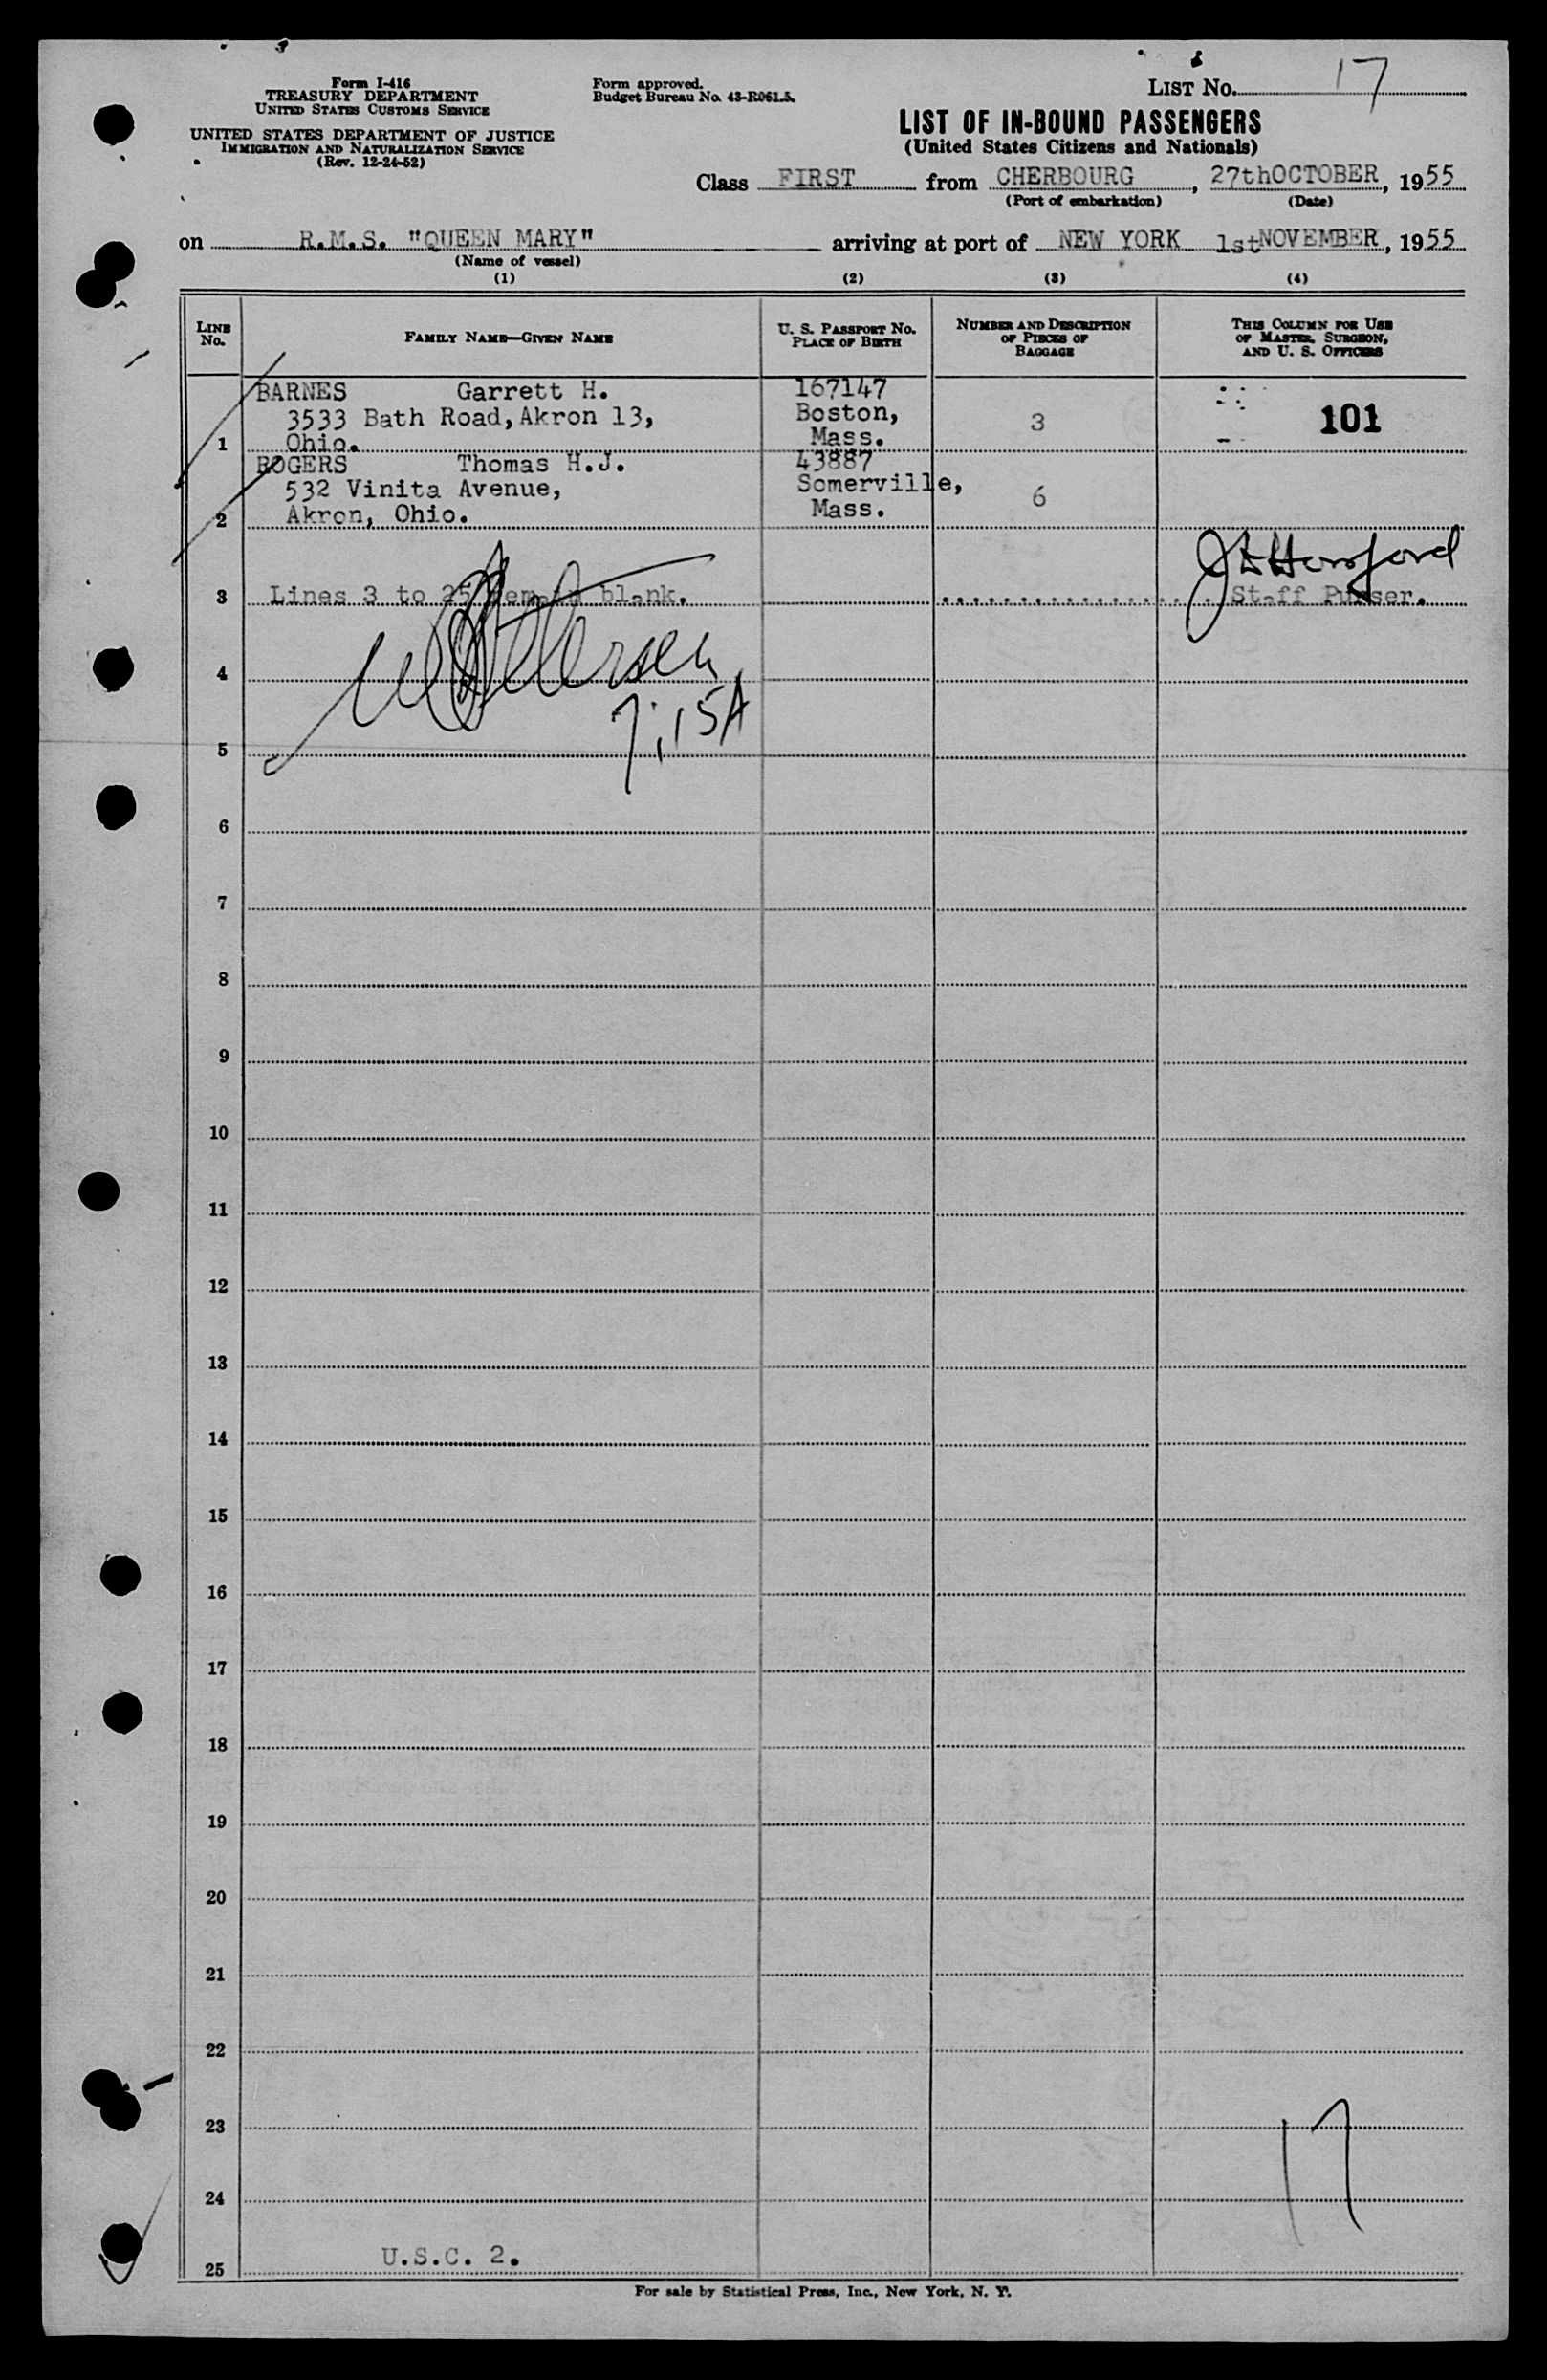 Form I-416
TREASURY DEPARTMENT
UNITED STATES CUSTOMS SERVICE
UNITED STATES DEPARTMENT OF JUSTICE
IMMIGRATION AND NATURALIZATION SERVICE
(Rev. 12-24-52)
Form approved.
Budget Bureau No. 43-R061.5.
LIST No. 17
LIST OF IN-BOUND PASSENGERS
(United States Citizens and Nationals)
Class FIRST from CHERBOURG, 27thOCTOBER, 1955
(Port of embarkation) (Date)
on R.M.S. "QUEEN MARY" arriving at port of NEW YORK 1stNOVEMBER, 1955
(Name of vessel)
(1) (2) (3) (4)
LINE No.
FAMILY NAME—GIVEN NAME
U. S. PASSPORT NO.
PLACE OF BIRTH
NUMBER AND DESCRIPTION
OF PIECES OF
BAGGAGE
THIS COLUMN FOR USE
OF MASTER, SURGEON,
AND U. S. OFFICERS
BARNES Garrett H. 167147
3533 Bath Road, Akron 13, Boston, 3 101
1 Ohio. Mass.
ROGERS Thomas H.J. 43887
532 Vinita Avenue, Somerville, 6
2 Akron, Ohio. Mass.
3 Lines 3 to 25 remain blank. Staff Purser.
4
7:15A
5
6
7
8
9
10
11
12
13
14
15
16
17
18
19
20
21
22
23
17
24
25 U.S.C. 2.
For sale by Statistical Press, Inc., New York, N. Y.